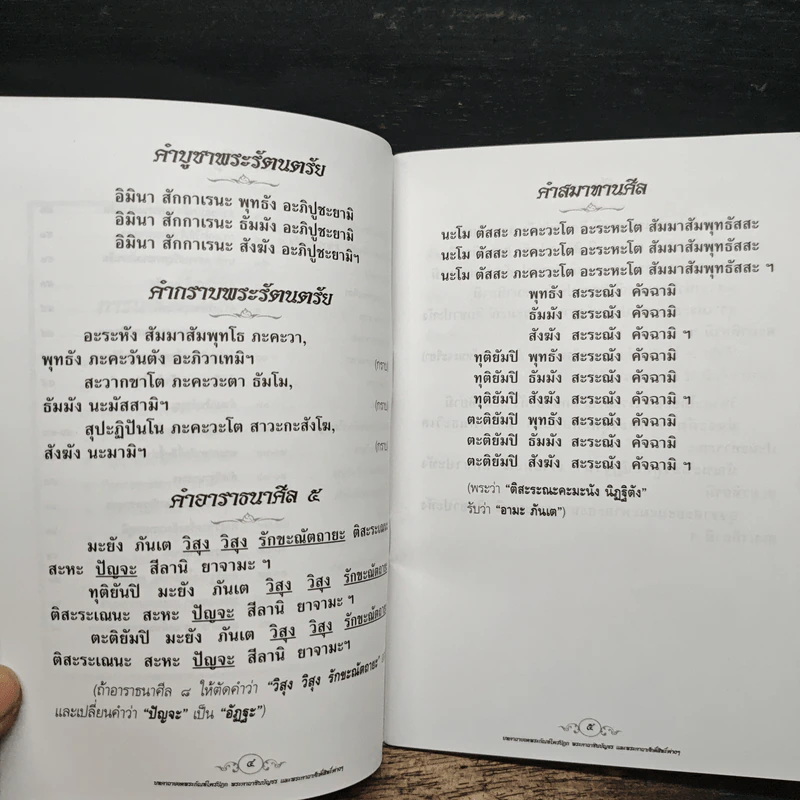 คำบูชาพระรัตนตรัย
อิมินา สักกาเรนะ พุทธัง อะภิปูชะยามิ
อิมินา สักกาเรนะ ธัมมัง อะภิปูชะยามิ
อิมินา สักกาเรนะ สังฆัง อะภิปูชะยามิฯ
คำกราบพระรัตนตรัย
อะระหัง สัมมาสัมพุทโธ ภะคะวา,
พุทธัง ภะคะวันตัง อะภิวาเทมิฯ (กราบ)
สะวากขาโต ภะคะวะตา ธัมโม,
ธัมมัง นะมัสสามิฯ (กราบ)
สุปะฏิปันโน ภะคะวะโต สาวะกะสังโฆ,
สังฆัง นะมามิฯ (กราบ)
คำอาราธนาศีล ๕
มะยัง ภันเต วิสุง วิสุง รักขะณัตถายะ ติสะระเณนะ
สะหะ ปัญจะ สีลานิ ยาจามะ ฯ
ทุติยันปิ มะยัง ภันเต วิสุง วิสุง รักขะณัตถายะ
ติสะระเณนะ สะหะ ปัญจะ สีลานิ ยาจามะ ฯ
ตะติยัมปิ มะยัง ภันเต วิสุง วิสุง รักขะณัตถายะ
ติสะระเณนะ สะหะ ปัญจะ สีลานิ ยาจามะฯ
(ถ้าอาราธนาศีล ๘ ให้ตัดคำว่า "วิสุง วิสุง รักขะณัตถายะ"
และเปลี่ยนคำว่า "ปัญจะ" เป็น "อัฏฐะ")
๔
คำสมาทานศีล
นะโม ตัสสะ ภะคะวะโต อะระหะโต สัมมาสัมพุทธัสสะ
นะโม ตัสสะ ภะคะวะโต อะระหะโต สัมมาสัมพุทธัสสะ
นะโม ตัสสะ ภะคะวะโต อะระหะโต สัมมาสัมพุทธัสสะ ฯ
พุทธัง สะระณัง คัจฉามิ
ธัมมัง สะระณัง คัจฉามิ
สังฆัง สะระณัง คัจฉามิ ฯ
ทุติยัมปิ พุทธัง สะระณัง คัจฉามิ
ทุติยัมปิ ธัมมัง สะระณัง คัจฉามิ
ทุติยัมปิ สังฆัง สะระณัง คัจฉามิ ฯ
ตะติยัมปิ พุทธัง สะระณัง คัจฉามิ
ตะติยัมปิ ธัมมัง สะระณัง คัจฉามิ
ตะติยัมปิ สังฆัง สะระณัง คัจฉามิ ฯ
(พระว่า "ติสะระณะคะมะนัง นิฏฐิตัง"
รับว่า "อามะ ภันเต")
๕